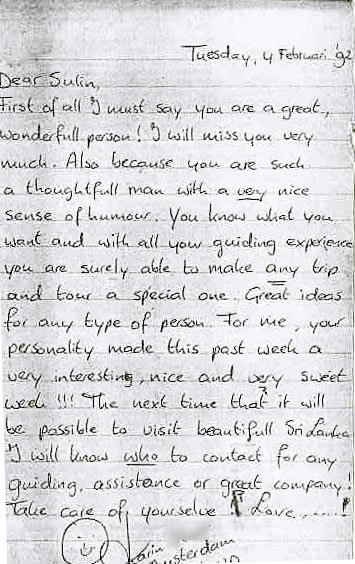 Tuesday, 4 Februari '92
Dear Sulin,
First of all I must say you are a great,
wonderfull person! I will miss you very
much. Also because you are such
a thoughtfull man with a very nice
sense of humour. You know what you
want and with all your guiding experience
you are surely able to make any trip
and tour a special one. Great ideas
for any type of person. For me, your
personality made this past week a
very interesting, nice and very sweet
week!!! The next time that it will
be possible to visit beautifull Sri Lanka
I will know who to contact for any
guiding, assistance or great company!
Take care of yourselve! Love, .....!
Amsterdam